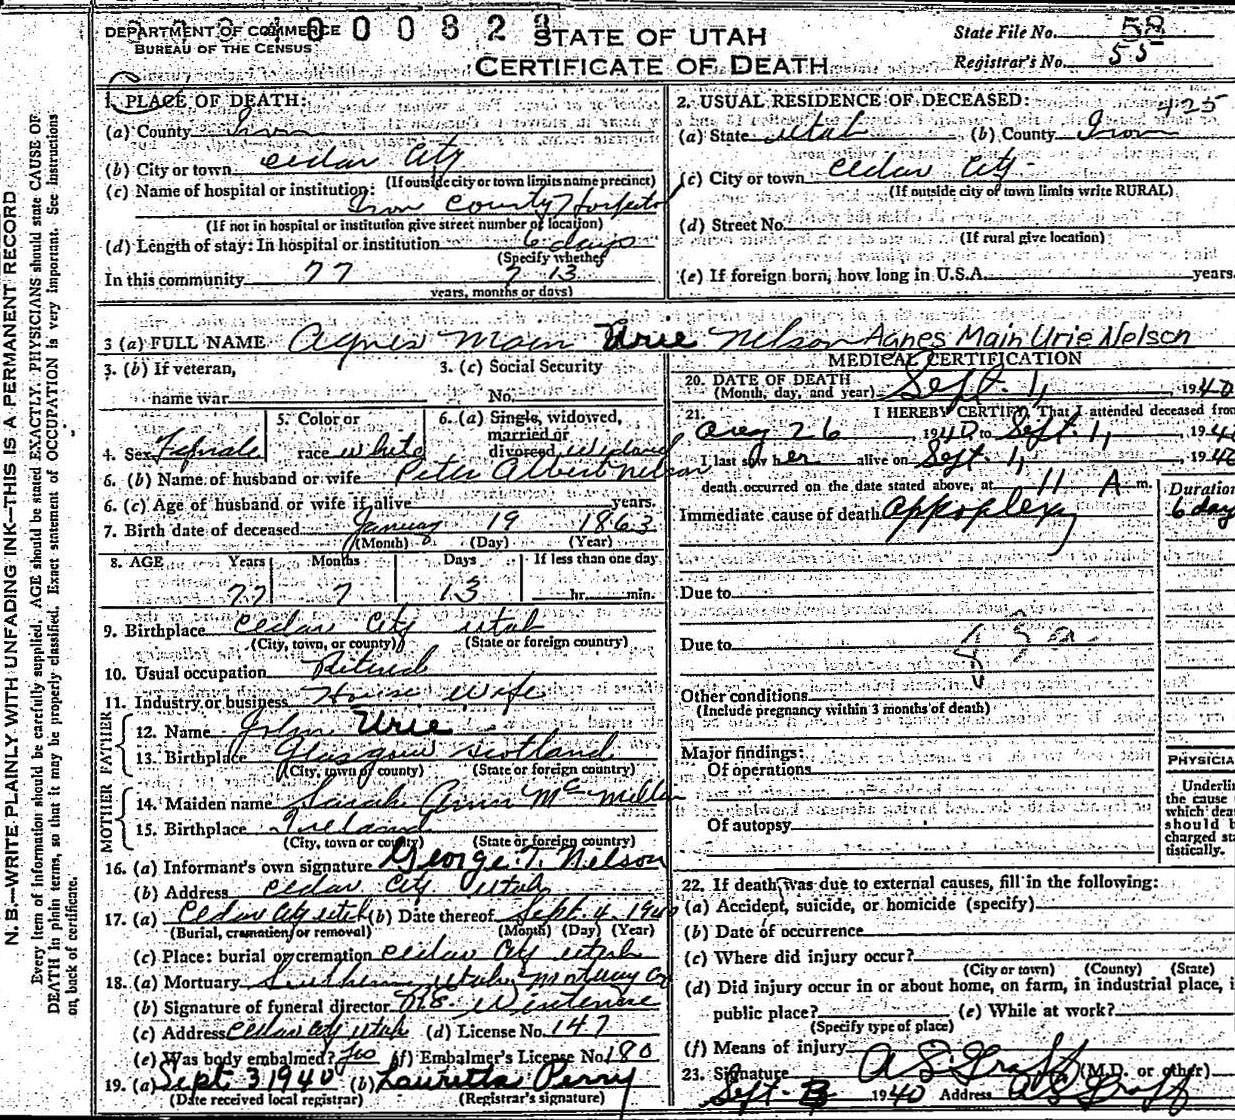 DEPARTMENT OF COMMERCE
BUREAU OF THE CENSUS
STATE OF UTAH
CERTIFICATE OF DEATH
State File No. 58
Registrar's No. 55
N. B.—WRITE PLAINLY WITH UNFADING INK—THIS IS A PERMANENT RECORD
Every item of information should be carefully supplied. AGE should be stated EXACTLY. PHYSICIANS should state CAUSE OF
DEATH in plain terms, so that it may be properly classified. Exact statement of OCCUPATION is very important. See instructions
on back of certificate.
1. PLACE OF DEATH:
(a) County Iron
(b) City or town Cedar City
(If outside city or town limits name precinct)
(c) Name of hospital or institution:
Iron County Hospital
(If not in hospital or institution give street number or location)
(d) Length of stay: In hospital or institution 6 days
(Specify whether
In this community 77 7 13
years, months or days)
2. USUAL RESIDENCE OF DECEASED: 425
(a) State Utah (b) County Iron
(c) City or town Cedar City
(If outside city or town limits write RURAL)
(d) Street No.
(If rural give location)
(e) If foreign born, how long in U.S.A. years.
3 (a) FULL NAME Agnes Main Urie Nelson Agnes Main Urie Nelson
3. (b) If veteran,
name war
3. (c) Social Security
No.
4. Sex Female
5. Color or
race white
6. (a) Single, widowed,
married or
divorced Widowed
6. (b) Name of husband or wife Peter Albert Nelson
6. (c) Age of husband or wife if alive years.
7. Birth date of deceased January 19 1863
(Month) (Day) (Year)
8. AGE Years Months Days If less than one day
77 7 13 hr. min.
9. Birthplace Cedar City Utah
(City, town, or county) (State or foreign country)
10. Usual occupation Retired
11. Industry or business House wife
FATHER
12. Name John Urie
13. Birthplace Glasgow Scotland
(City, town or county) (State or foreign country)
MOTHER
14. Maiden name Sarah Ann McMillan
15. Birthplace Ireland
(City, town or county) (State or foreign country)
16. (a) Informant's own signature George T. Nelson
(b) Address Cedar City Utah
17. (a) Cedar City Utah (b) Date thereof Sept. 4, 1940
(Burial, cremation, or removal) (Month) (Day) (Year)
(c) Place: burial or cremation Cedar City Utah
18. (a) Mortuary Southern Utah Mortuary Co
(b) Signature of funeral director
(c) Address Cedar City Utah (d) License No. 147
(e) Was body embalmed? Yes (f) Embalmer's License No. 180
19. (a) Sept. 3 1940 (b) Lauretta Perry
(Date received local registrar) (Registrar's signature)
MEDICAL CERTIFICATION
20. DATE OF DEATH
(Month, day, and year) Sept. 1, 1940
21. I HEREBY CERTIFY, That I attended deceased from
Aug 26, 1940 to Sept. 1, 1940
I last saw her alive on Sept. 1, 1940
death occurred on the date stated above, at 11 A m.
Duration
Immediate cause of death Appoplexy 6 day
Due to
Due to
Other conditions
(Include pregnancy within 3 months of death)
Major findings:
Of operations
Of autopsy
PHYSICIA
Underlin
the cause
which dea
should b
charged sta
tistically.
22. If death was due to external causes, fill in the following:
(a) Accident, suicide, or homicide (specify)
(b) Date of occurrence
(c) Where did injury occur?
(City or town) (County) (State)
(d) Did injury occur in or about home, on farm, in industrial place, i
public place? (e) While at work?
(Specify type of place)
(f) Means of injury
23. Signature (M.D. or other)
Sept 1940 Address